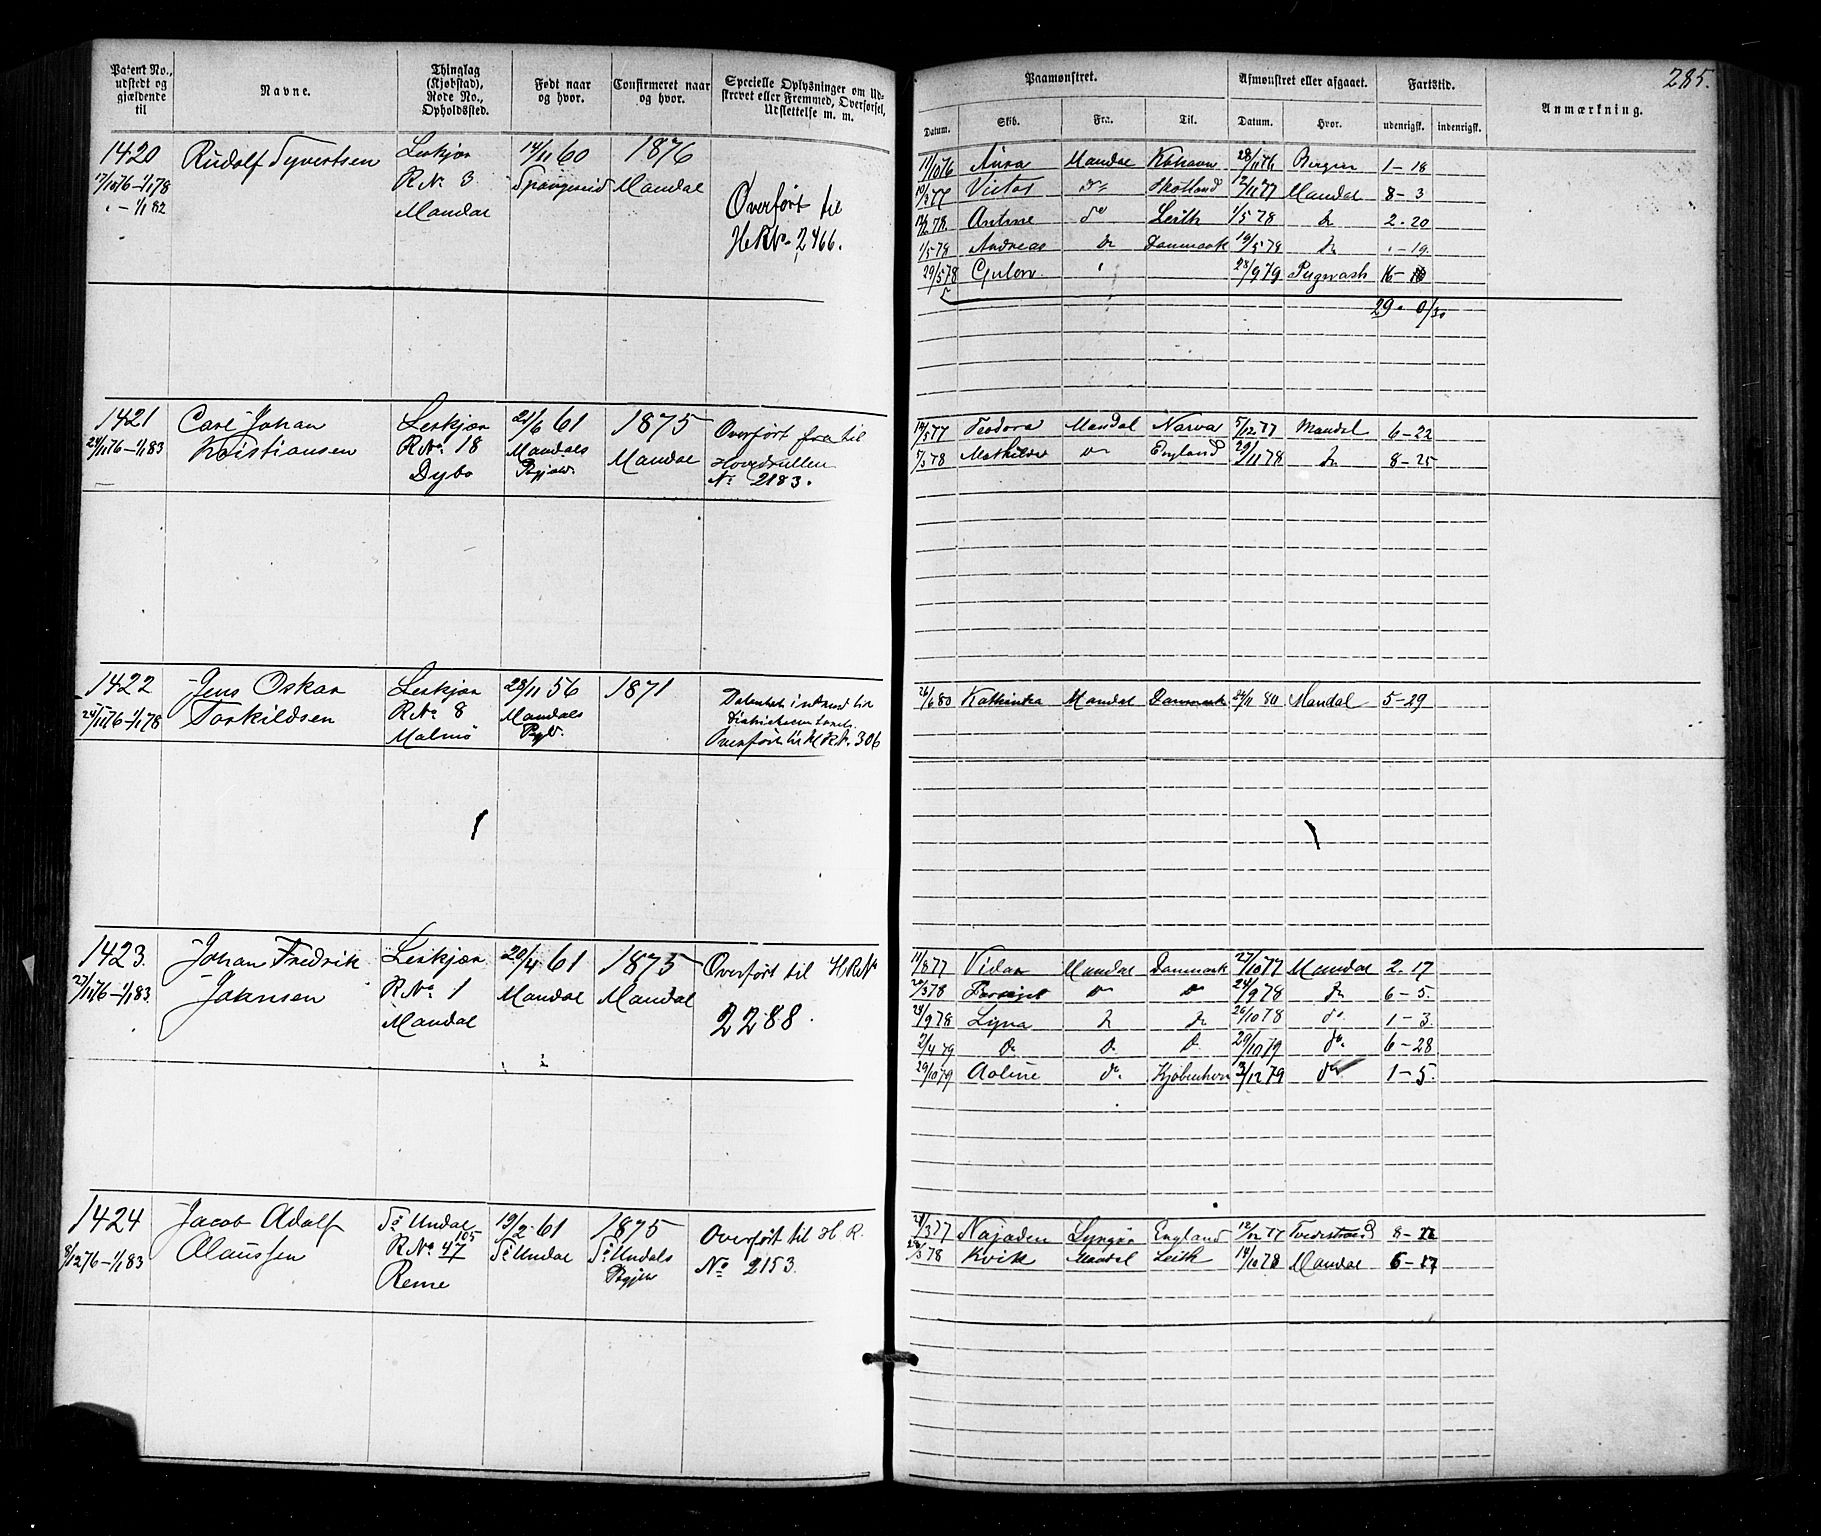 Patent No., udstedt og gjældende til
Navne.
Thinglag (Kjøbstad), Rode No., Opholdssted.
Født naar og hvor.
Confirmeret naar og hvor.
Specielle Oplysninger om Udskrevet eller Fremmed, Overførsel, Udslettelse m. m.
1420
Rudolf Syvertsen
R No 3
Mandal
14/11 60
1876
Mandal
Overført til
HRNo 2466.
1421
Carl Johan
Kristiansen
24/11 76 - 1/1 83
R No 18
Dybo
21/6 61
Mandals
1875
Mandal
Overført fra til
Hovedrullen
No 2183.
1422
Jens Oskar
Torkildsen
24/11 76 - 1/1 78
R No 8
Malmø
28/11 56
Mandals
1871
Overført til HRN. 306
1423.
Johan Fredrik
Johnsen
27/11 76 - 1/1 83.
R No 1
Mandal
20/4 61
Mandal
1875
Mandal
Overført til HRNo
2288.
1424
Jacob Adolf
Olaussen
8/12 76 - 1/1 83
Sø Undal
R No 47
105
Reme
19/2 61
Sø Undal
1875
Sø Undals
Overført til H R.
No 2153.
285.
Paamønstret.
Afmønstret eller afgaaet.
Fartstid.
Anmærkning.
Datum.
Skib.
Fra.
Til.
Datum.
Hvor.
udenrigst.
indenrigst.
11/10 76 Mandal 28/11 76 Bergen 1-18
Victor do Skotland 12/11 77 Mandal 8-3
do Leith 1/5 78 do 2-20
1/5 78 Andreas do Danmark 19/5 78 do - 19
29/5 78 28/9 79 Pugwash 16-
29
14/5 77 Teodora Mandal Narva 5/12 77 Mandal 6-22
7/3 78 Mathilde do England 11 78 do 8-25
26/6 80 Kathinka Mandal Danmark 24/11 80 Mandal 5-29
11/8 77 Vidar Mandal Danmark 27/10 77 Mandal 2-17
20/3 78 do do 24/9 78 do 6-5.
28/9 78 Ligna do do 26/10 78 do 1-3.
2/4 79 do do do 29/10 79 do 6-28
29/10 79 Aoline do Kjøbenhavn 3/12 79 do 1-5.
3 77 Najaden Lyngør England 12/12 77 Tvedestrand 8-
3 78 Kvik Mandal Leith 14/10 78 Mandal 6-17